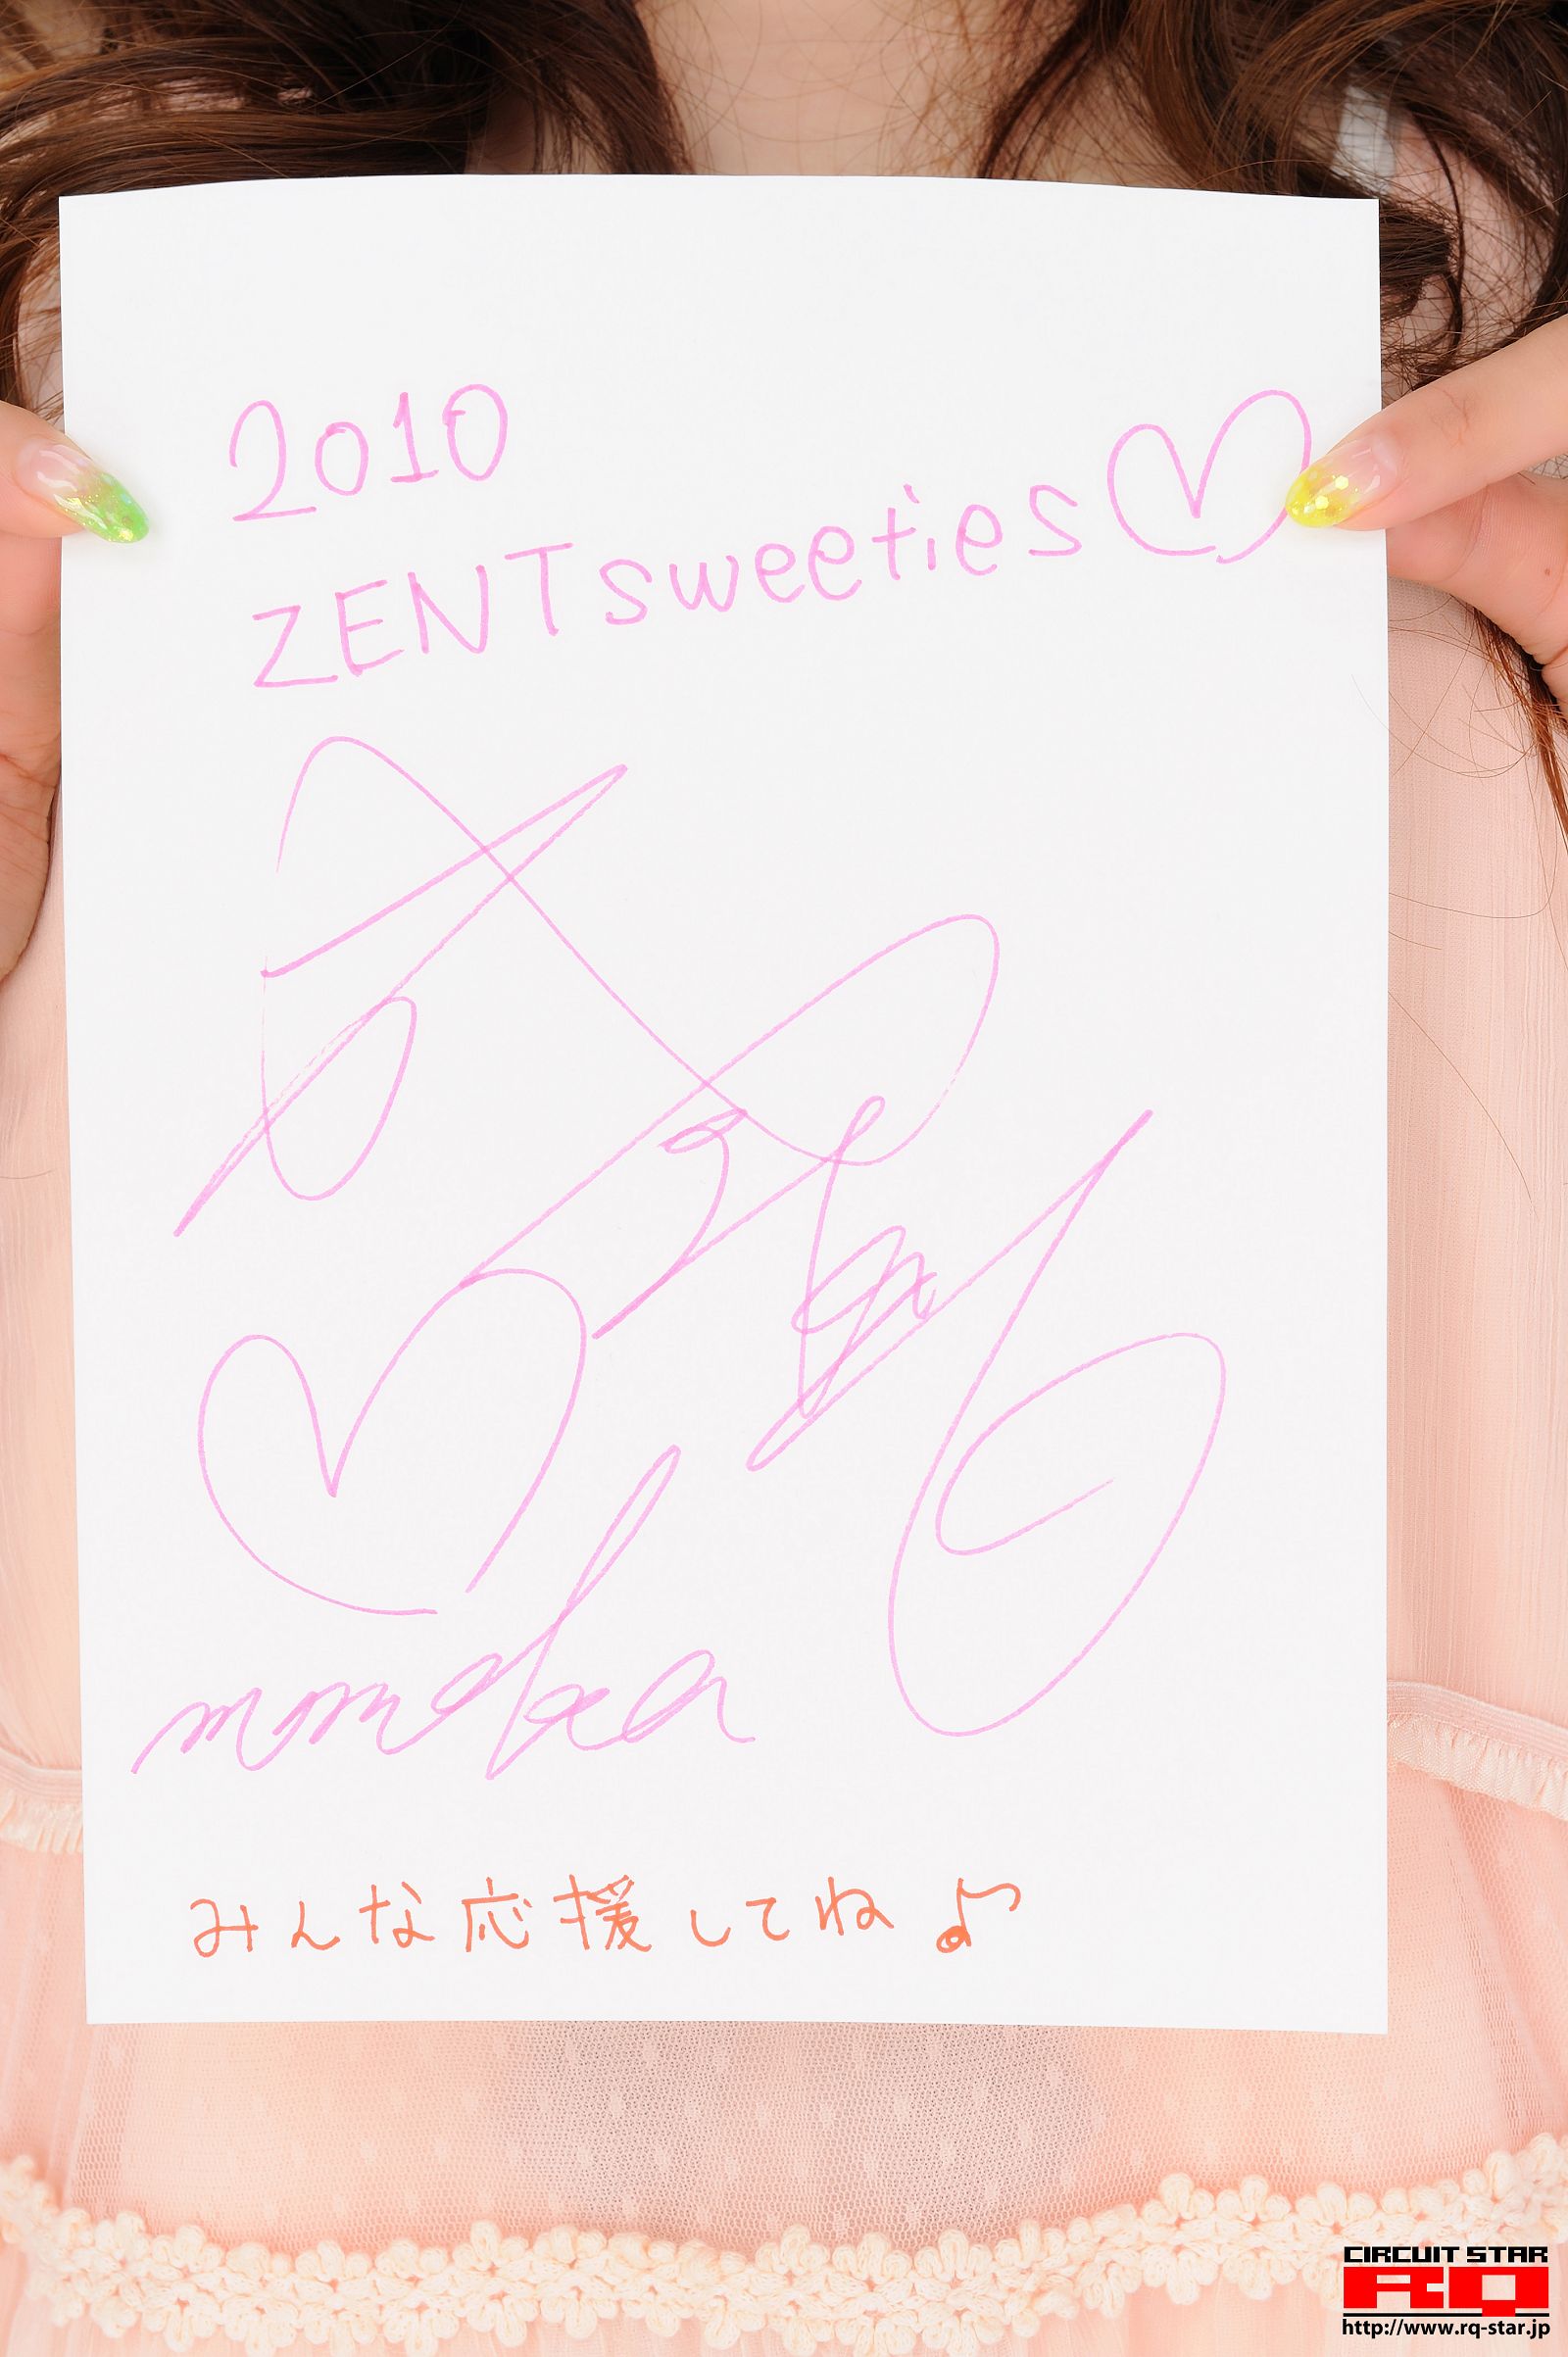 2010
ZENTsweeties♡
momoka
みんな応援してね♪
CIRCUIT STAR
RQ
http://www.rq-star.jp